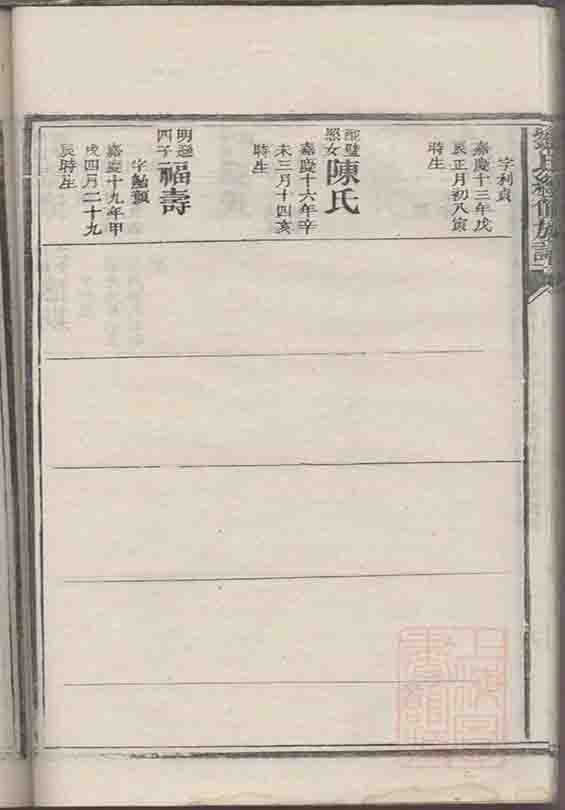 氏續修族譜
字利貞
嘉慶十三年戊
辰正月初八寅
時生
配璧
照女
陳氏
嘉慶十六年辛
未三月十四亥
時生
明
四子
福壽
字
嘉慶十九年甲
戌四月二十九
辰時生
上海圖
書館藏